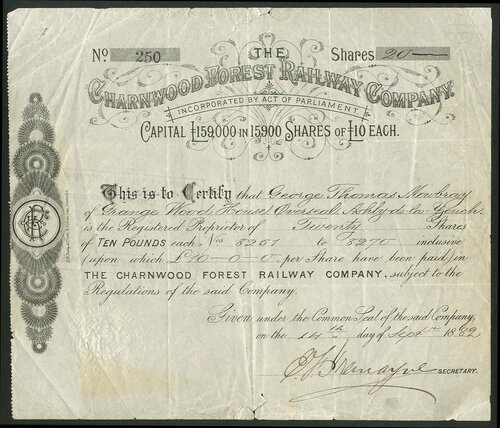 No. 250 THE Shares 20
CHARNWOOD FOREST RAILWAY COMPANY.
INCORPORATED BY ACT OF PARLIAMENT.
CAPITAL £159,000 IN 15900 SHARES OF £10 EACH.
This is to Certify that George Thomas Mowbray
of Grange Wood House, Overseal, Ashby de la Zouch,
is the Registered Proprietor of Twenty Shares
of TEN POUNDS each Nos 5251 to 5270 inclusive
(upon which £10-0-0 per Share have been paid) in
THE CHARNWOOD FOREST RAILWAY COMPANY, subject to the
Regulations of the said Company.
Given under the Common Seal of the said Company,
on the 14th day of Septr 1882
SECRETARY.